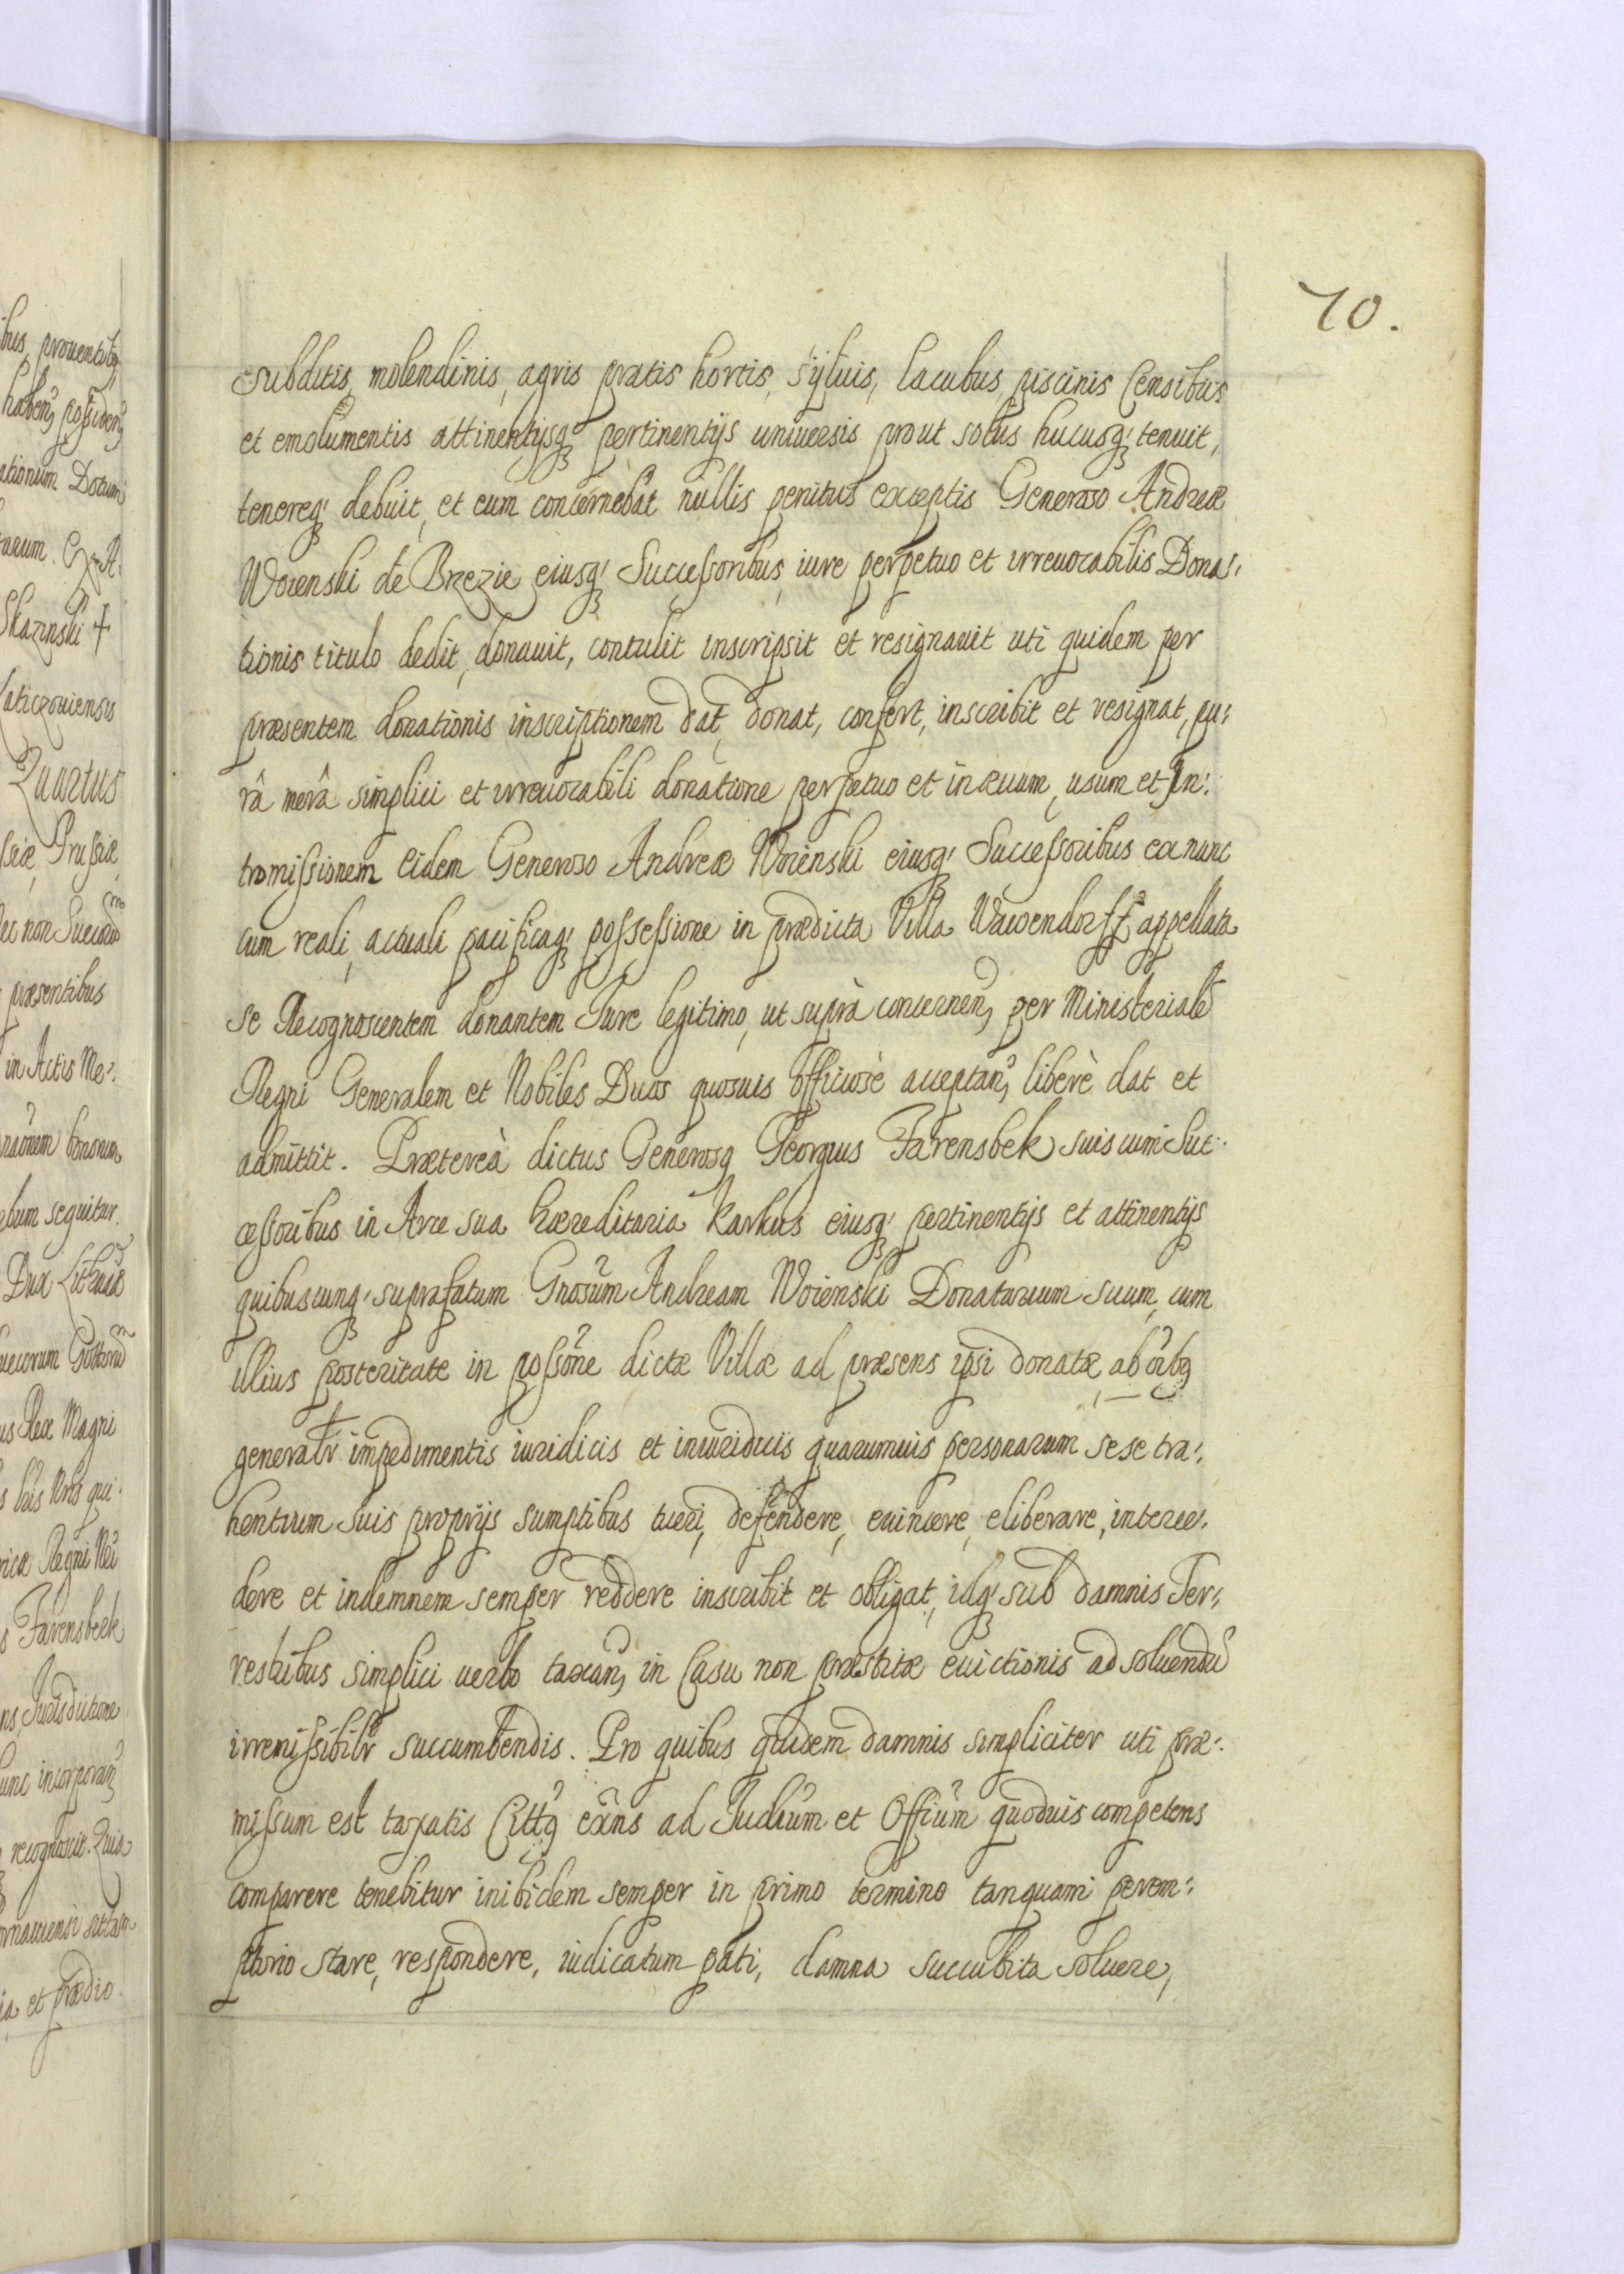 10.
subditis, molendinis, agris pratis hortis, syluis, lacubus, piscinis Censibus
et emolumentis attinentijsq; pertinentijs uniuersis prout solus hucusq; tenuit,
tenereq; debuit, et eum concernebat nullis penitus exceptis Generoso Andreæ
Woienski de Brzezie eiusq; Successoribus iure perpetuo et irreuocabilis Dona-
tionis titulo dedit, donauit, contulit inscripsit et resignauit uti quidem per
præsentem donationis inscriptionem dat, donat, confert, inscribit et resignat, pu-
râ merâ simplici et irreuocabili donatione perpetuo et in æuum, usum et In-
tromissionem eidem Generoso Andreæ Woienski eiusq; Successoribus ex nunc
cum reali, actuali pacificaq; possessione in prædicta Villa Wawendorff appellata
se Recognoscentem donantem Jure legitimo, ut suprà concernen, per Ministerialē
Regni Generalem et Nobiles Duos quosuis officiosè acceptan, liberè dat et
admittit. Prætereà dictus Generosq Georgius Farensbek suis cum Suc-
cessoribus in Arce sua hæreditaria Karkus eiusq; pertinentijs et attinentijs
quibuscunq; suprafatum Gnosum Andream Woienski Donatarium suum, cum
illius posteritate in possōne dictæ Villæ ad præsens ipsi donatæ, ab oībq
generalr impedimentis iuridicis et iniuridicis quarumuis personarum sese tra-
hentium suis proprijs sumptibus tueri, defendere, euincere, eliberare, interce-
dere et indemnem semper reddere inscribit et obligat, idq; sub damnis Ter-
restribus simplici uerbo taxan, in Casu non præstitæ euictionis ad soluendū
irremissibilr succumbendis. Pro quibus quidem damnis simpliciter uti præ-
missum est taxatis Cittq exīns ad Judium et Offium quoduis competens
comparere tenebitur inibidem semper in primo termino tanquam perem-
ptorio stare, respondere, iudicatum pati, damna succubita soluere,